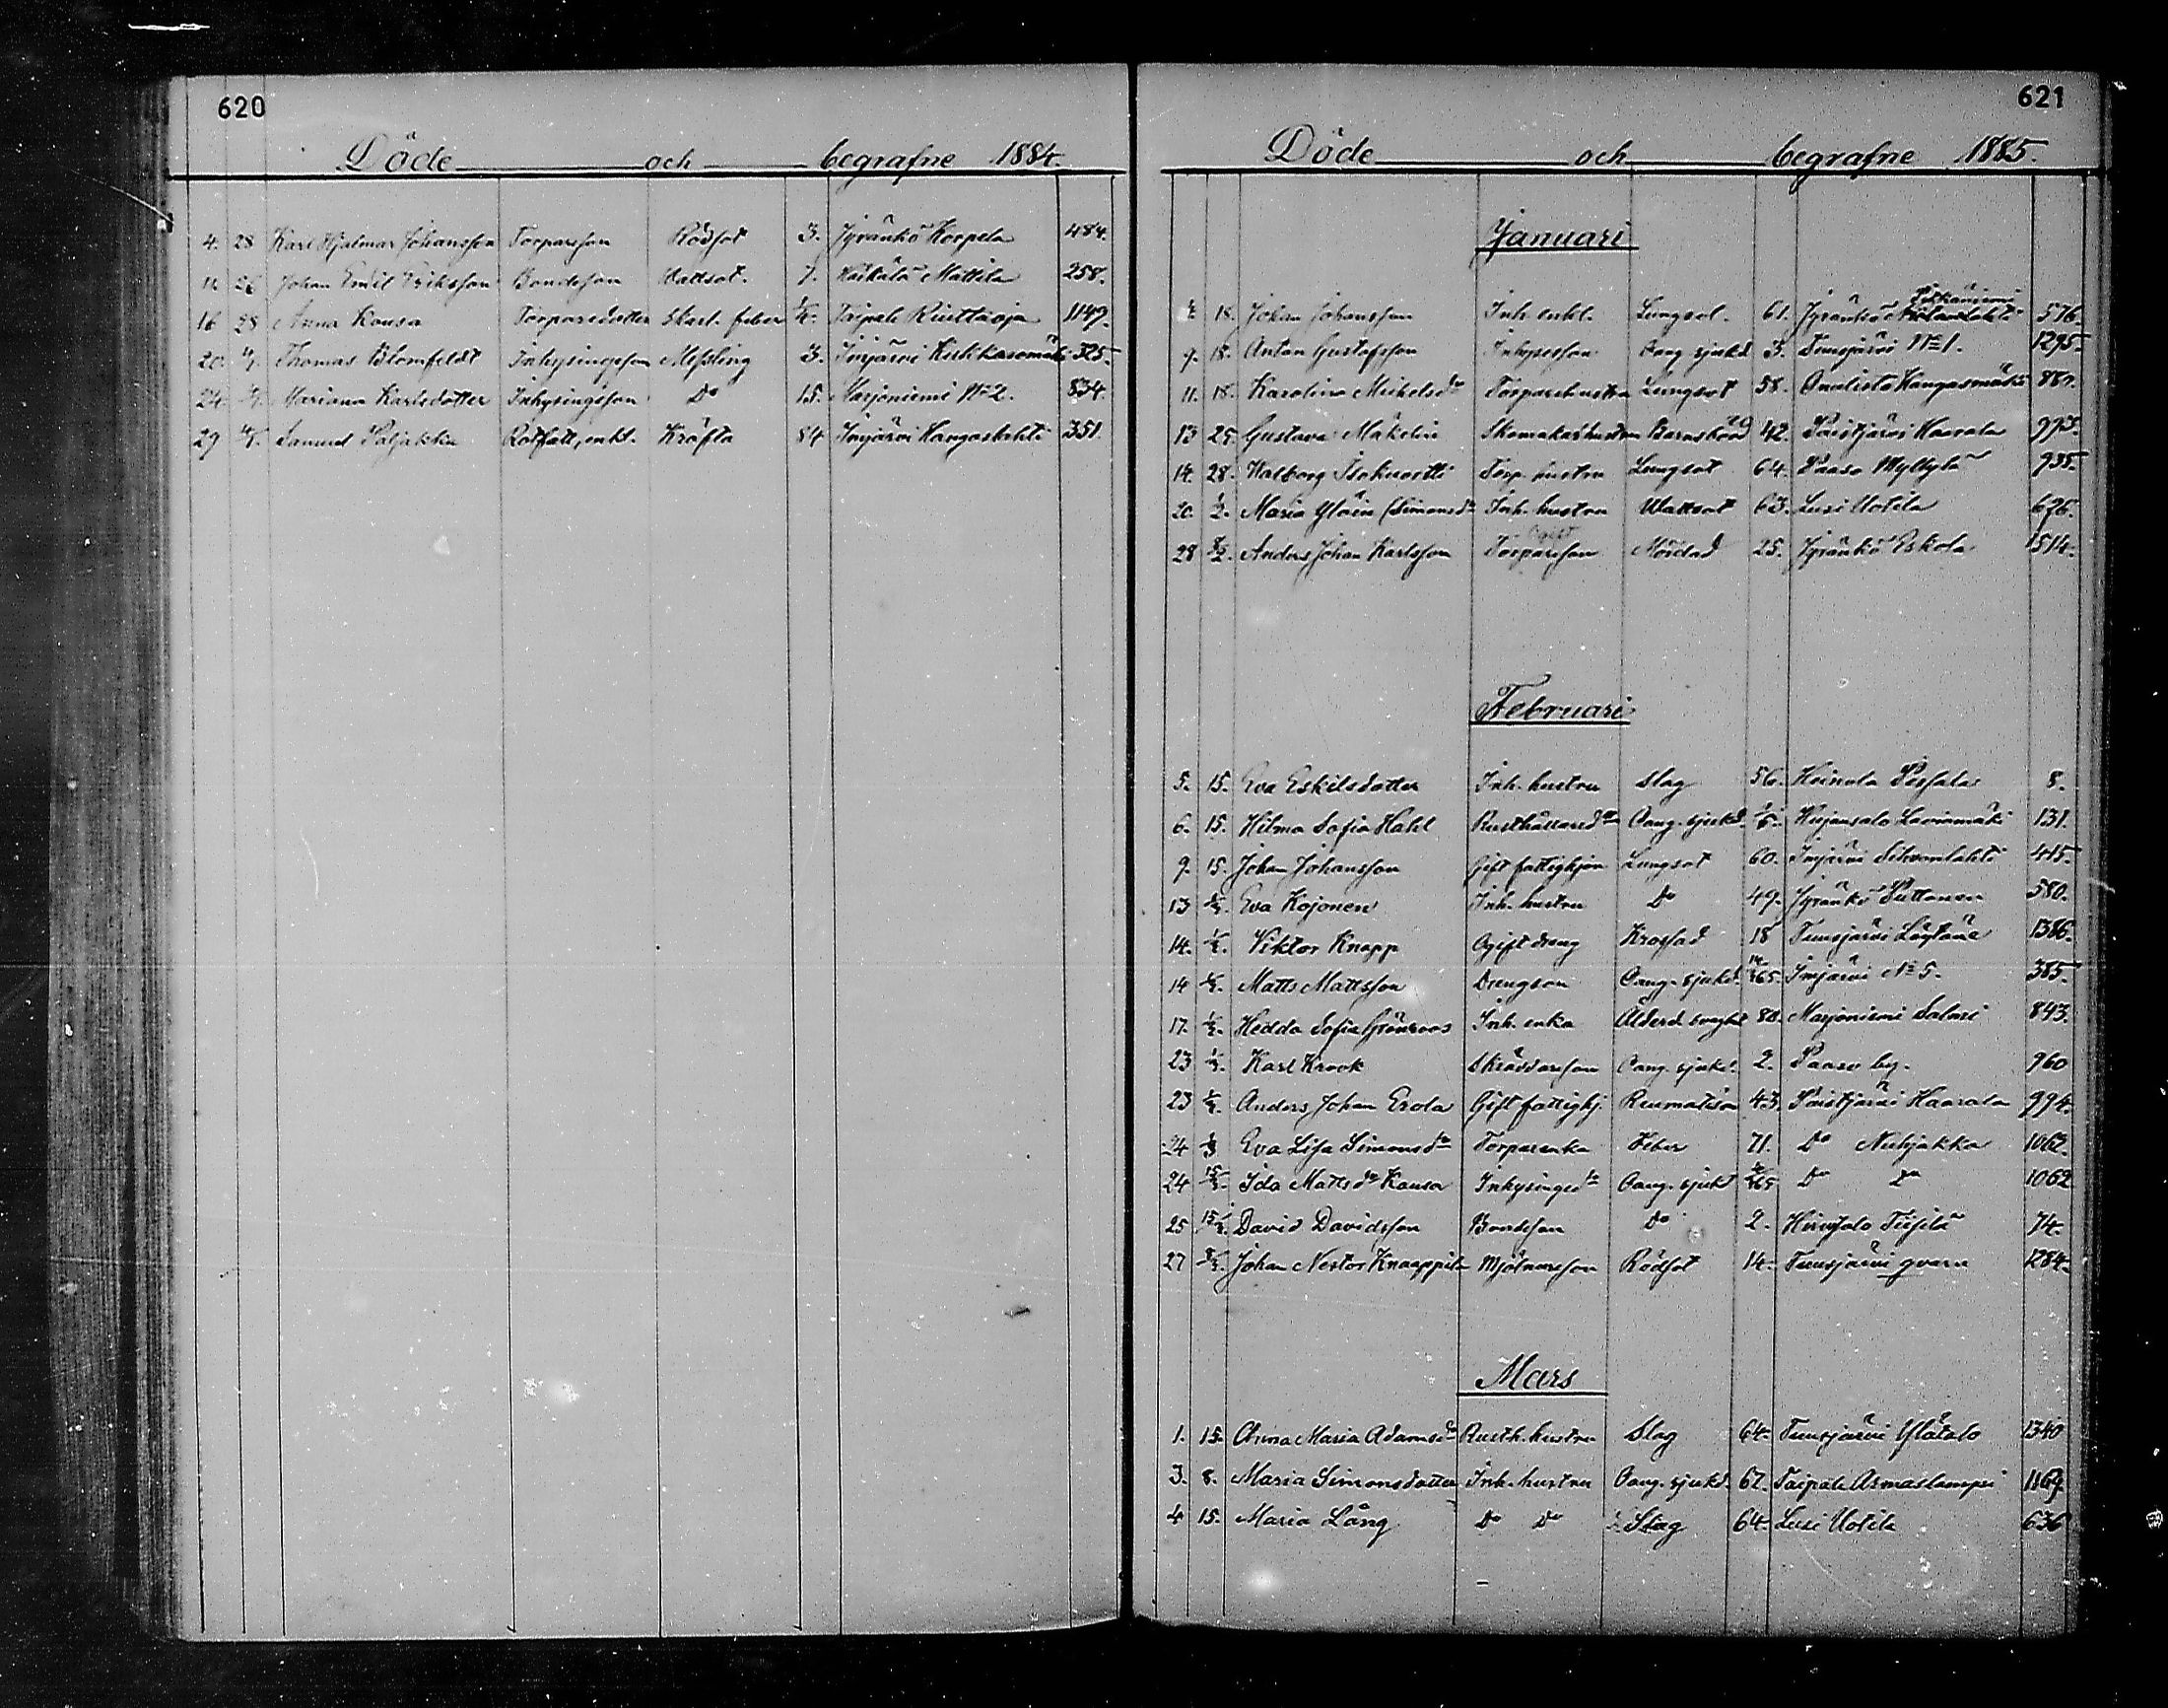 620
Döde och begrafne 1884.
4. 28 Karl Hjalmar Johansson Torpareson Rödsot 3. Jyränkö Korpela 484.
11. 26 Johan Emil Eriksson Bondeson Vattsot. 7. Mattila 258.
16 28 Anna Kousa Torparedotter Skarl. feber Taipale 1149.
20. Thomas Blomfeldt Inhysingeson Messling 3. Imjärvi 325.
24. Mariana Karlsdotter Inhysingeson Do 15. Marjoniemi No 2. 834.
29 Samuel Paljakka Rotfatt., enkl. Kräfta 84 Imjärvi Kangaslahti 351
621
Döde och begrafne 1885.
Januari
18. Johan Johansson Inh. enkl. Lungsot. 61. Jyränkö 576.
9. 18. Anton Gustafsson Inhyseson Oang. sjukd. 3. Tunsjärvi No 1. 1295.
11. 18. Karolina Mickelsdr Torparehustru Lungsot 58. Kangasmäki 887.
13 25. Gustava Mäkelin Skomakarhustru Barnsbörd 42. Paistjärvi Haarala 993.
14. 28. Walborg Isokuortti Torp. hustru Lungsot 64. Paaso Myllylä 935.
20. ½. Maria Yläin (Simonsdr Inh. hustru Wattsot 63. Lusi Uotila 676.
Ogift
28 8/2. Anders Johan Karlsson Torpareson Mördad 25. Jyränkö Eskola 1514.
Februari
5. 15. Eva Eskilsdotter Inh. hustru Slag 56. Heinola 8.
6. 15. Hilma Sofia Hahl Rusthållaredtr Oang. sjukd. Hirjansalo 131.
9. 15. Johan Johansson Gift fattighjon Lungsot 60. Imjärvi Sihvonlahti 415.
13 Eva Kojonen Inh. hustru Do 49. Jyränkö Puttonen 580.
14. Viktor Knapp Ogift dreng Krossad 18 Tunsjärvi Löytänä 1386.
14 Matts Mattsson Drengson Oang. sjukd. 14/365. Imjärvi No 5. 385.
17. Hedda Sofia Grönroos Inh. enka Ålderd. svaghet 80. Marjoniemi Salmi 843.
23 Karl Krook Skräddareson Oang. sjukd. 2. Paaso by. 960
23 Anders Johan Erola Gift fattighj. Reumatism 43. Paistjärvi Haarala 994.
24 Eva Lisa Simonsdr Torparenka Feber 71. Do Nuhjakka 1062.
24 15/3. Ida Mattsdr Kousa Inhysingedtr Oang. sjukd Do Do 1062
25 15/3. David Davidsson Bondeson Do 2. Hirvisalo 74.
27 8/3. Johan Nestor Knaappila Mjölnareson Rödsot 14. Tunsjärvi qvarn 1284.
Mars
1. 15. Anna Maria Adamsdr Rusth. hustru Slag 64. Tunsjärvi Ylätalo 1340
3. 8. Maria Simonsdotter Inh. hustru Oang. sjukd. 62. Taipale Armaslampi 1167
4 15. Maria Lång Do Do Slag 64. Lusi Uotila 636